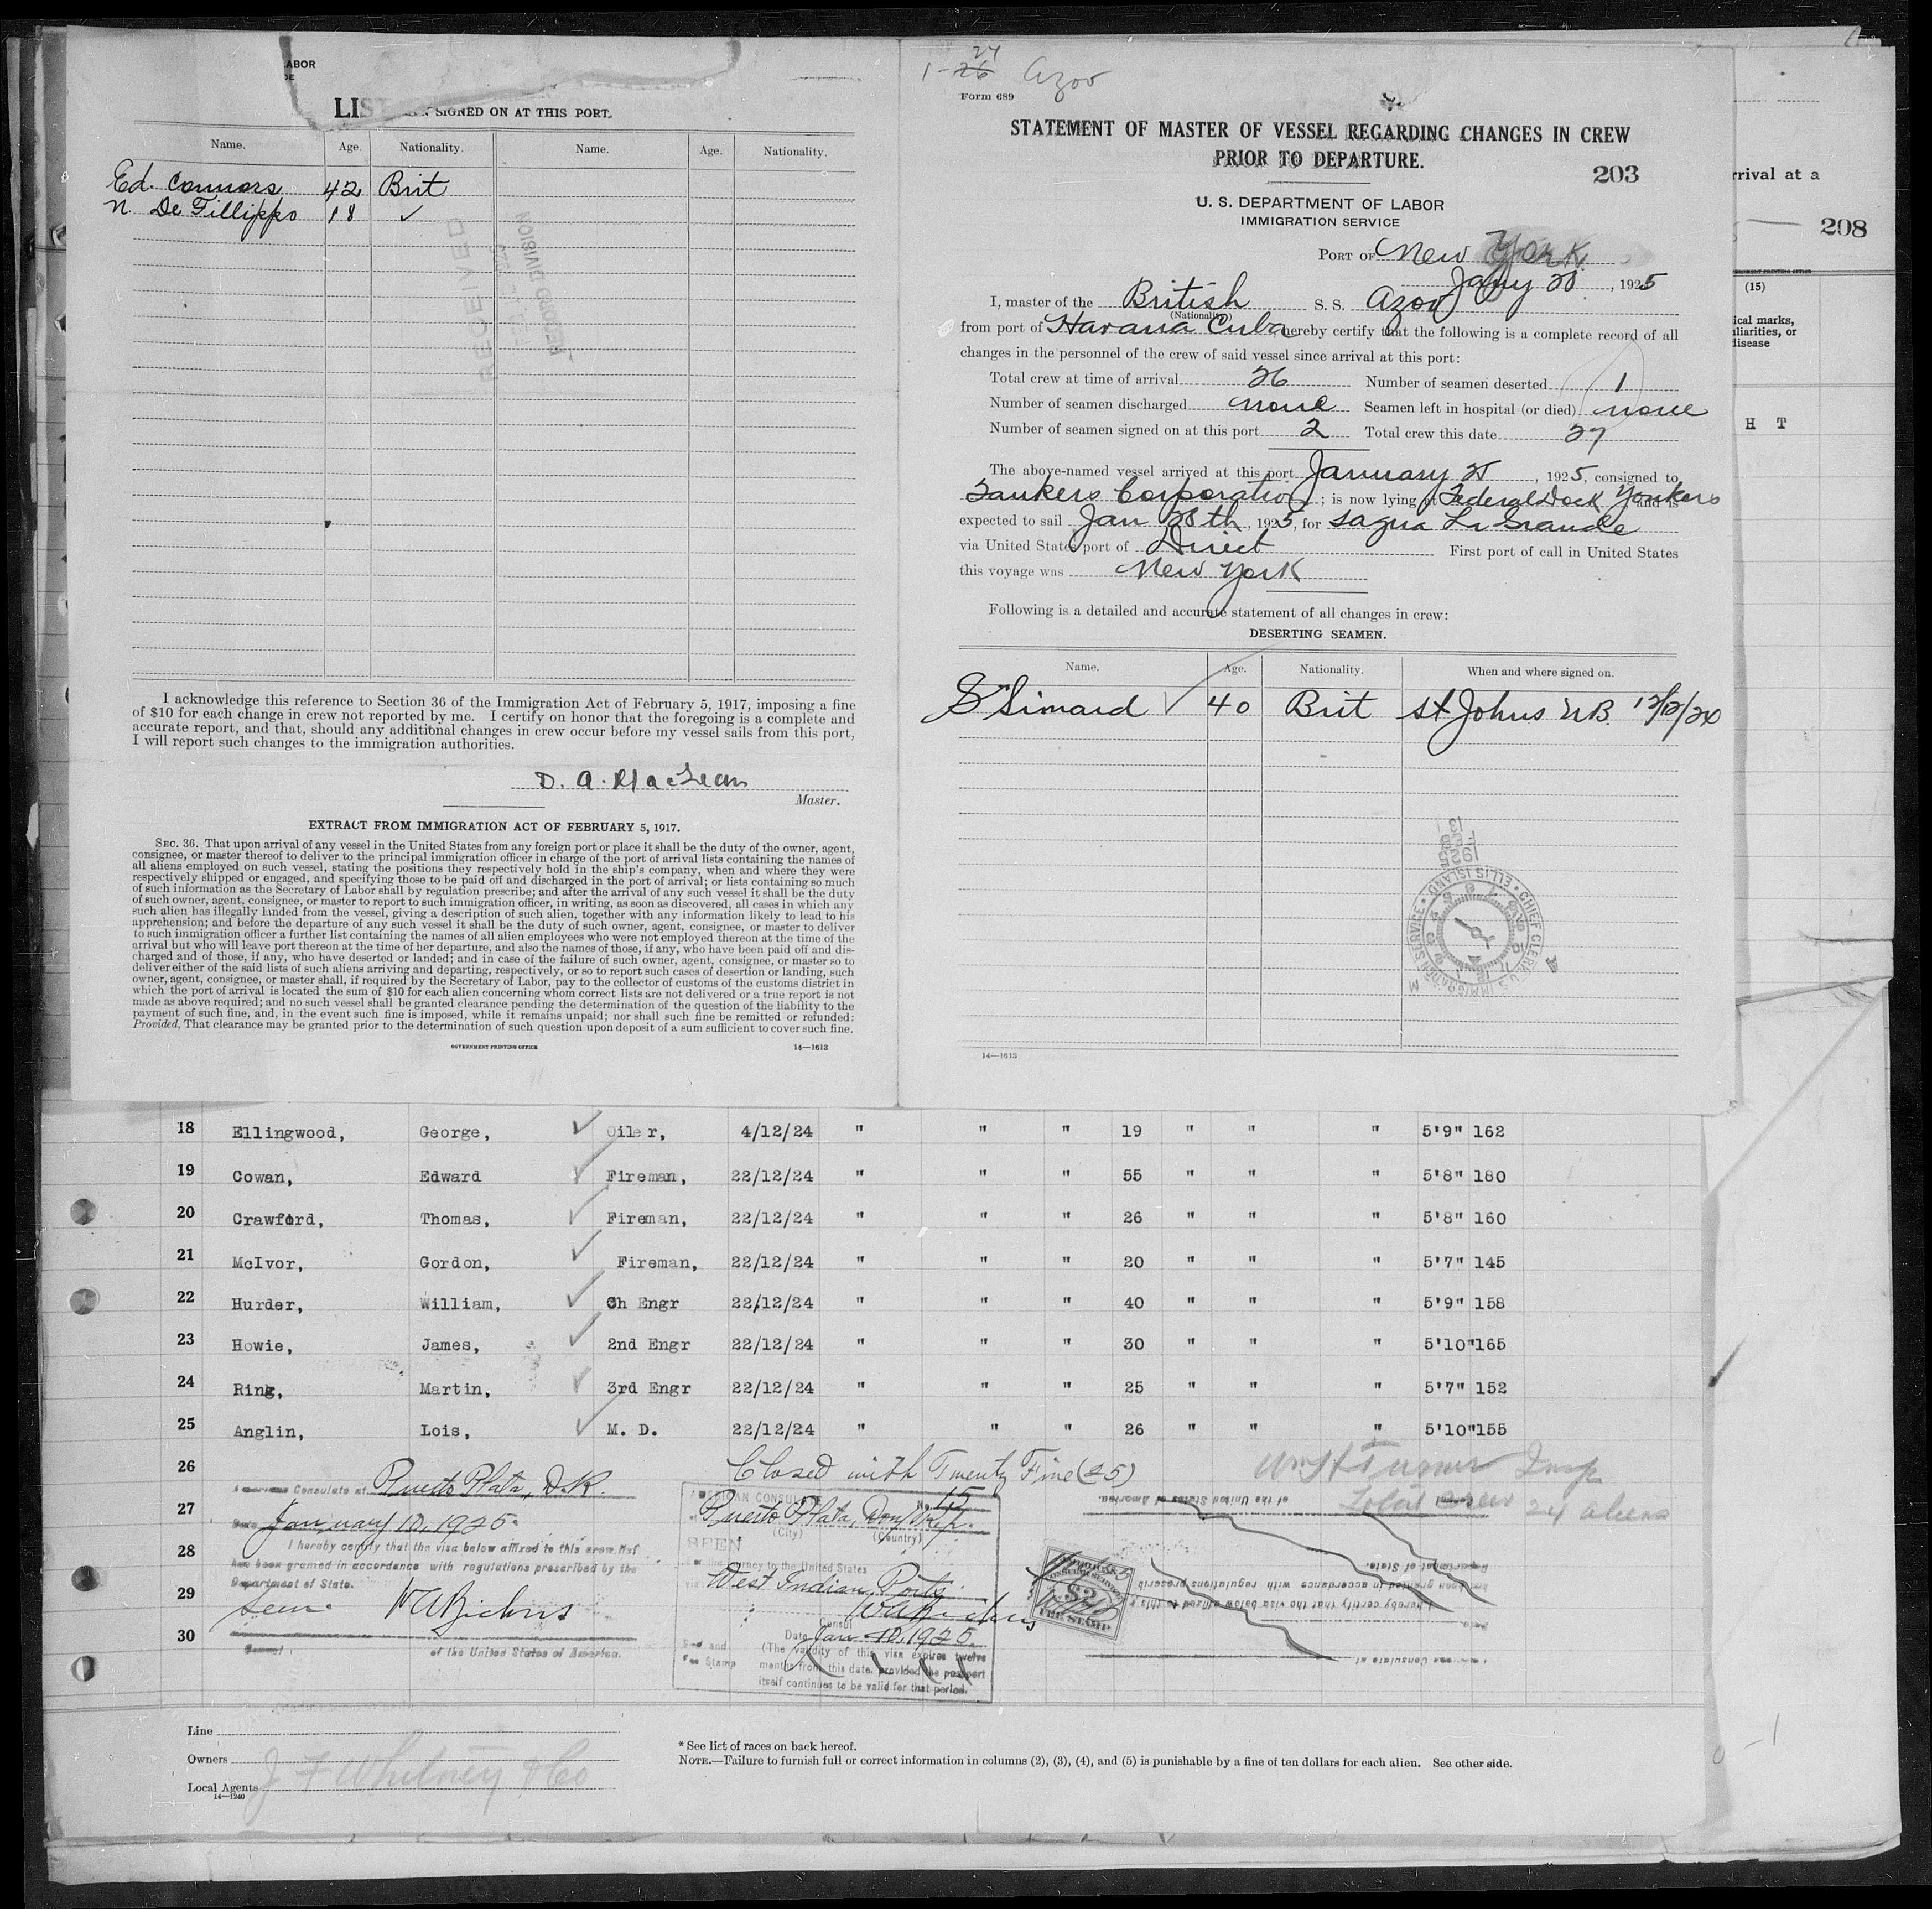 LABOR
LIS SIGNED ON AT THIS PORT.
Name. Age. Nationality. Name. Age. Nationality.
Ed. Connors 42 Brit
N De Fillippo 18 ✓
RECEIVED
RECORD DIVISION
I acknowledge this reference to Section 36 of the Immigration Act of February 5, 1917, imposing a fine
of $10 for each change in crew not reported by me. I certify on honor that the foregoing is a complete and
accurate report, and that, should any additional changes in crew occur before my vessel sails from this port,
I will report such changes to the immigration authorities.
D. A. MacLean
Master.
EXTRACT FROM IMMIGRATION ACT OF FEBRUARY 5, 1917.
SEC. 36. That upon arrival of any vessel in the United States from any foreign port or place it shall be the duty of the owner, agent,
consignee, or master thereof to deliver to the principal immigration officer in charge of the port of arrival lists containing the names of
all aliens employed on such vessel, stating the positions they respectively hold in the ship's company, when and where they were
respectively shipped or engaged, and specifying those to be paid off and discharged in the port of arrival; or lists containing so much
of such information as the Secretary of Labor shall by regulation prescribe; and after the arrival of any such vessel it shall be the duty
of such owner, agent, consignee, or master to report to such immigration officer, in writing, as soon as discovered, all cases in which any
such alien has illegally landed from the vessel, giving a description of such alien, together with any information likely to lead to his
apprehension; and before the departure of any such vessel it shall be the duty of such owner, agent, consignee, or master to deliver
to such immigration officer a further list containing the names of all alien employees who were not employed thereon at the time of the
arrival but who will leave port thereon at the time of her departure, and also the names of those, if any, who have been paid off and dis-
charged and of those, if any, who have deserted or landed; and in case of the failure of such owner, agent, consignee, or master so to
deliver either of the said lists of such aliens arriving and departing, respectively, or so to report such cases of desertion or landing, such
owner, agent, consignee, or master shall, if required by the Secretary of Labor, pay to the collector of customs of the customs district in
which the port of arrival is located the sum of $10 for each alien concerning whom correct lists are not delivered or a true report is not
made as above required; and no such vessel shall be granted clearance pending the determination of the question of the liability to the
payment of such fine, and, in the event such fine is imposed, while it remains unpaid; nor shall such fine be remitted or refunded:
Provided, That clearance may be granted prior to the determination of such question upon deposit of a sum sufficient to cover such fine.
GOVERNMENT PRINTING OFFICE 14—1613
27
1-26 Azov
Form 689
STATEMENT OF MASTER OF VESSEL REGARDING CHANGES IN CREW
PRIOR TO DEPARTURE.
203
U. S. DEPARTMENT OF LABOR
IMMIGRATION SERVICE
PORT OF New York
Jany 28, 1925
I, master of the British S. S. Azov
(Nationality)
from port of Havana Cuba, hereby certify that the following is a complete record of all
changes in the personnel of the crew of said vessel since arrival at this port:
Total crew at time of arrival 26 Number of seamen deserted 1
Number of seamen discharged none Seamen left in hospital (or died) none
Number of seamen signed on at this port 2 Total crew this date 27
The above-named vessel arrived at this port January 25, 1925, consigned to
Tankers Corporation; is now lying at Federal Dock Yonkers and is
expected to sail Jan 28th, 1925, for Sagua La Grande
via United States port of Direct First port of call in United States
this voyage was New York
Following is a detailed and accurate statement of all changes in crew:
DESERTING SEAMEN.
Name. Age. Nationality. When and where signed on.
S Simard ✓ 40 Brit St Johns N.B. 12/12/24
CHIEF CLERK U.S. IMMIGRATION SERVICE • ELLIS ISLAND •
14—1613
rrival at a
208
GOVERNMENT PRINTING OFFICE
(15)
ical marks,
uliarities, or
disease
H T
18 Ellingwood, George, ✓ Oiler, 4/12/24 " " " 19 " " " 5'9" 162
19 Cowan, Edward ✓ Fireman, 22/12/24 " " " 55 " " " 5'8" 180
20 Crawford, Thomas, ✓ Fireman, 22/12/24 " " " 26 " " " 5'8" 160
21 McIvor, Gordon, ✓ Fireman, 22/12/24 " " " 20 " " " 5'7" 145
22 Hurder, William, ✓ Ch Engr 22/12/24 " " " 40 " " " 5'9" 158
23 Howie, James, ✓ 2nd Engr 22/12/24 " " " 30 " " " 5'10" 165
24 Ring, Martin, ✓ 3rd Engr 22/12/24 " " " 25 " " " 5'7" 152
25 Anglin, Lois, ✓ M. D. 22/12/24 " " " 26 " " " 5'10" 155
26 Closed with Twenty Five (25) Wm H Turner Insp
Total crew 24 aliens
American Consulate at Puerto Plata, D.R.
27
Date January 10, 1925.
28 I hereby certify that the visa below affixed to this crew list
has been granted in accordance with regulations prescribed by the
Department of State.
29
30
Consul of the United States of America.
AMERICAN CONSULATE No. 15
Puerto Plata, Dom. Rep.
(City) (Country)
SEEN
For the journey to the United States
via West Indian Ports
Consul
Date Jan 10, 1925
(The validity of this visa expires twelve
months from this date, provided the passport
itself continues to be valid for that period.
Seal and
Fee Stamp
$2
FEE STAMP
of the United States of America.
Department of State.
has been granted in accordance with regulations prescrib
I hereby certify that the visa below affixed to this
Date
American Consulate at
Line
Owners
Local Agents J F Whitney & Co
14—1240
* See list of races on back hereof.
NOTE.—Failure to furnish full or correct information in columns (2), (3), (4), and (5) is punishable by a fine of ten dollars for each alien. See other side.